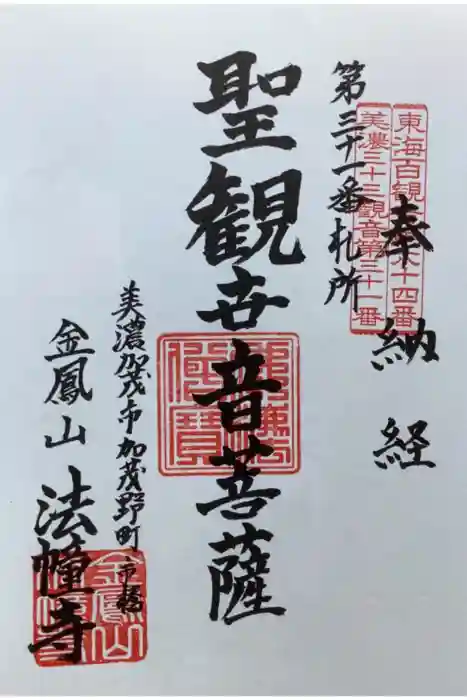 奉納経
東海百観 十四番
美濃三十三観音第三十一番
第三十一番札所
聖観世音菩薩
佛法僧寶
美濃加茂市加茂野町市橋
金鳳山 法幢寺
金鳳山